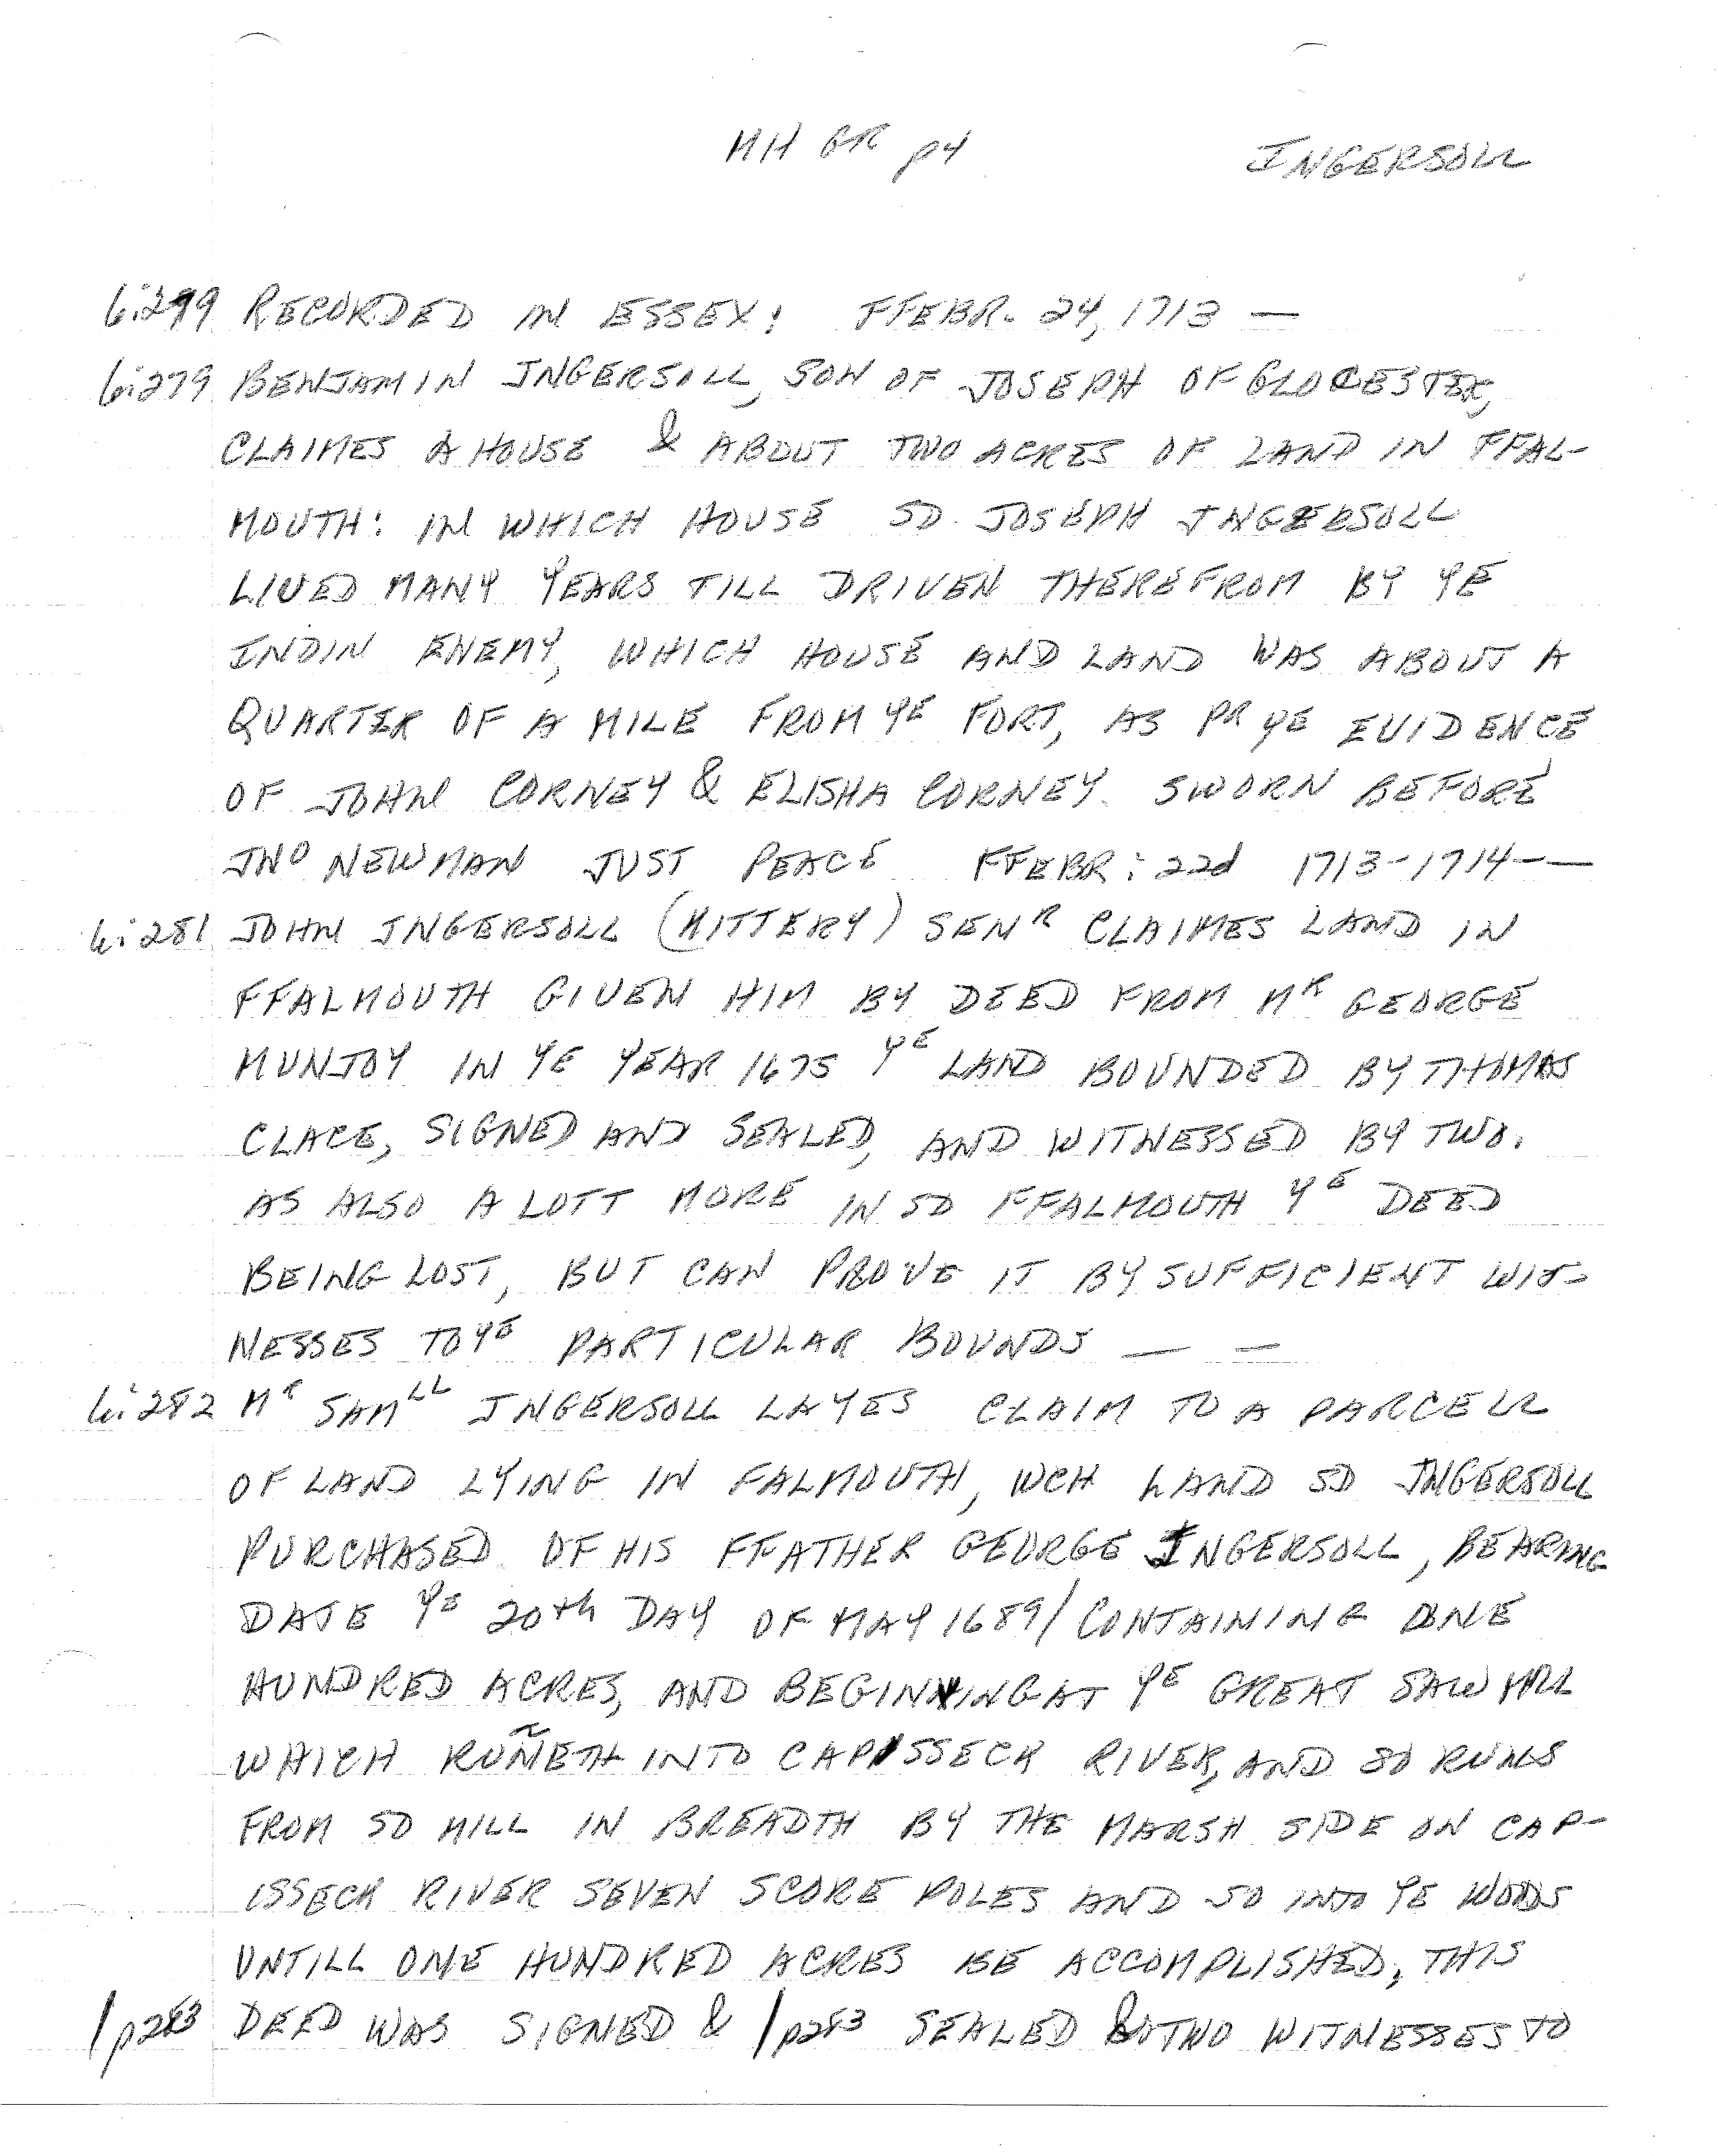 MH GR p4 INGERSOLL
6:279 RECORDED IN ESSEX: FFEBR. 24, 1713 —
6:279 BENJAMIN INGERSOLL, SON OF JOSEPH OF GLOCESTER,
CLAIMES A HOUSE & ABOUT TWO ACRES OF LAND IN FFAL-
MOUTH: IN WHICH HOUSE SD. JOSEPH INGERSOLL
LIVED MANY YEARS TILL DRIVEN THEREFROM BY YE
INDIN ENEMY, WHICH HOUSE AND LAND WAS ABOUT A
QUARTER OF A MILE FROM YE FORT, AS PR YE EVIDENCE
OF JOHN CORNEY & ELISHA CORNEY. SWORN BEFORE
JNO NEWMAN JUST PEACE FFEBR: 22d 1713-1714——
6:281 JOHN INGERSOLL (KITTERY) SENR CLAIMES LAND IN
FFALMOUTH GIVEN HIM BY DEED FROM MR GEORGE
MUNJOY IN YE YEAR 1675 YE LAND BOUNDED BY THOMAS
CLACE, SIGNED AND SEALED, AND WITNESSED BY TWO.
AS ALSO A LOTT MORE IN SD FFALMOUTH YE DEED
BEING LOST, BUT CAN PROVE IT BY SUFFICIENT WIT-
NESSES TO YE PARTICULAR BOUNDS — —
6:282 MR SAMLL INGERSOLL LAYES CLAIM TO A PARCELL
OF LAND LYING IN FALMOUTH, WCH LAND SD INGERSOLL
PURCHASED OF HIS FFATHER GEORGE INGERSOLL, BEARING
DATE YE 20th DAY OF MAY 1689/ CONTAINING ONE
HUNDRED ACRES, AND BEGINNING AT YE GREAT SAW MILL
WHICH RUÑETH INTO CAPISSECK RIVER, AND SO RUNS
FROM SD MILL IN BREADTH BY THE MARSH SIDE ON CAP-
ISSECK RIVER SEVEN SCORE POLES AND SO INTO YE WOODS
UNTILL ONE HUNDRED ACRES BE ACCOMPLISHED, THIS
/p283 DEED WAS SIGNED & /p283 SEALED & TWO WITNESSES TO